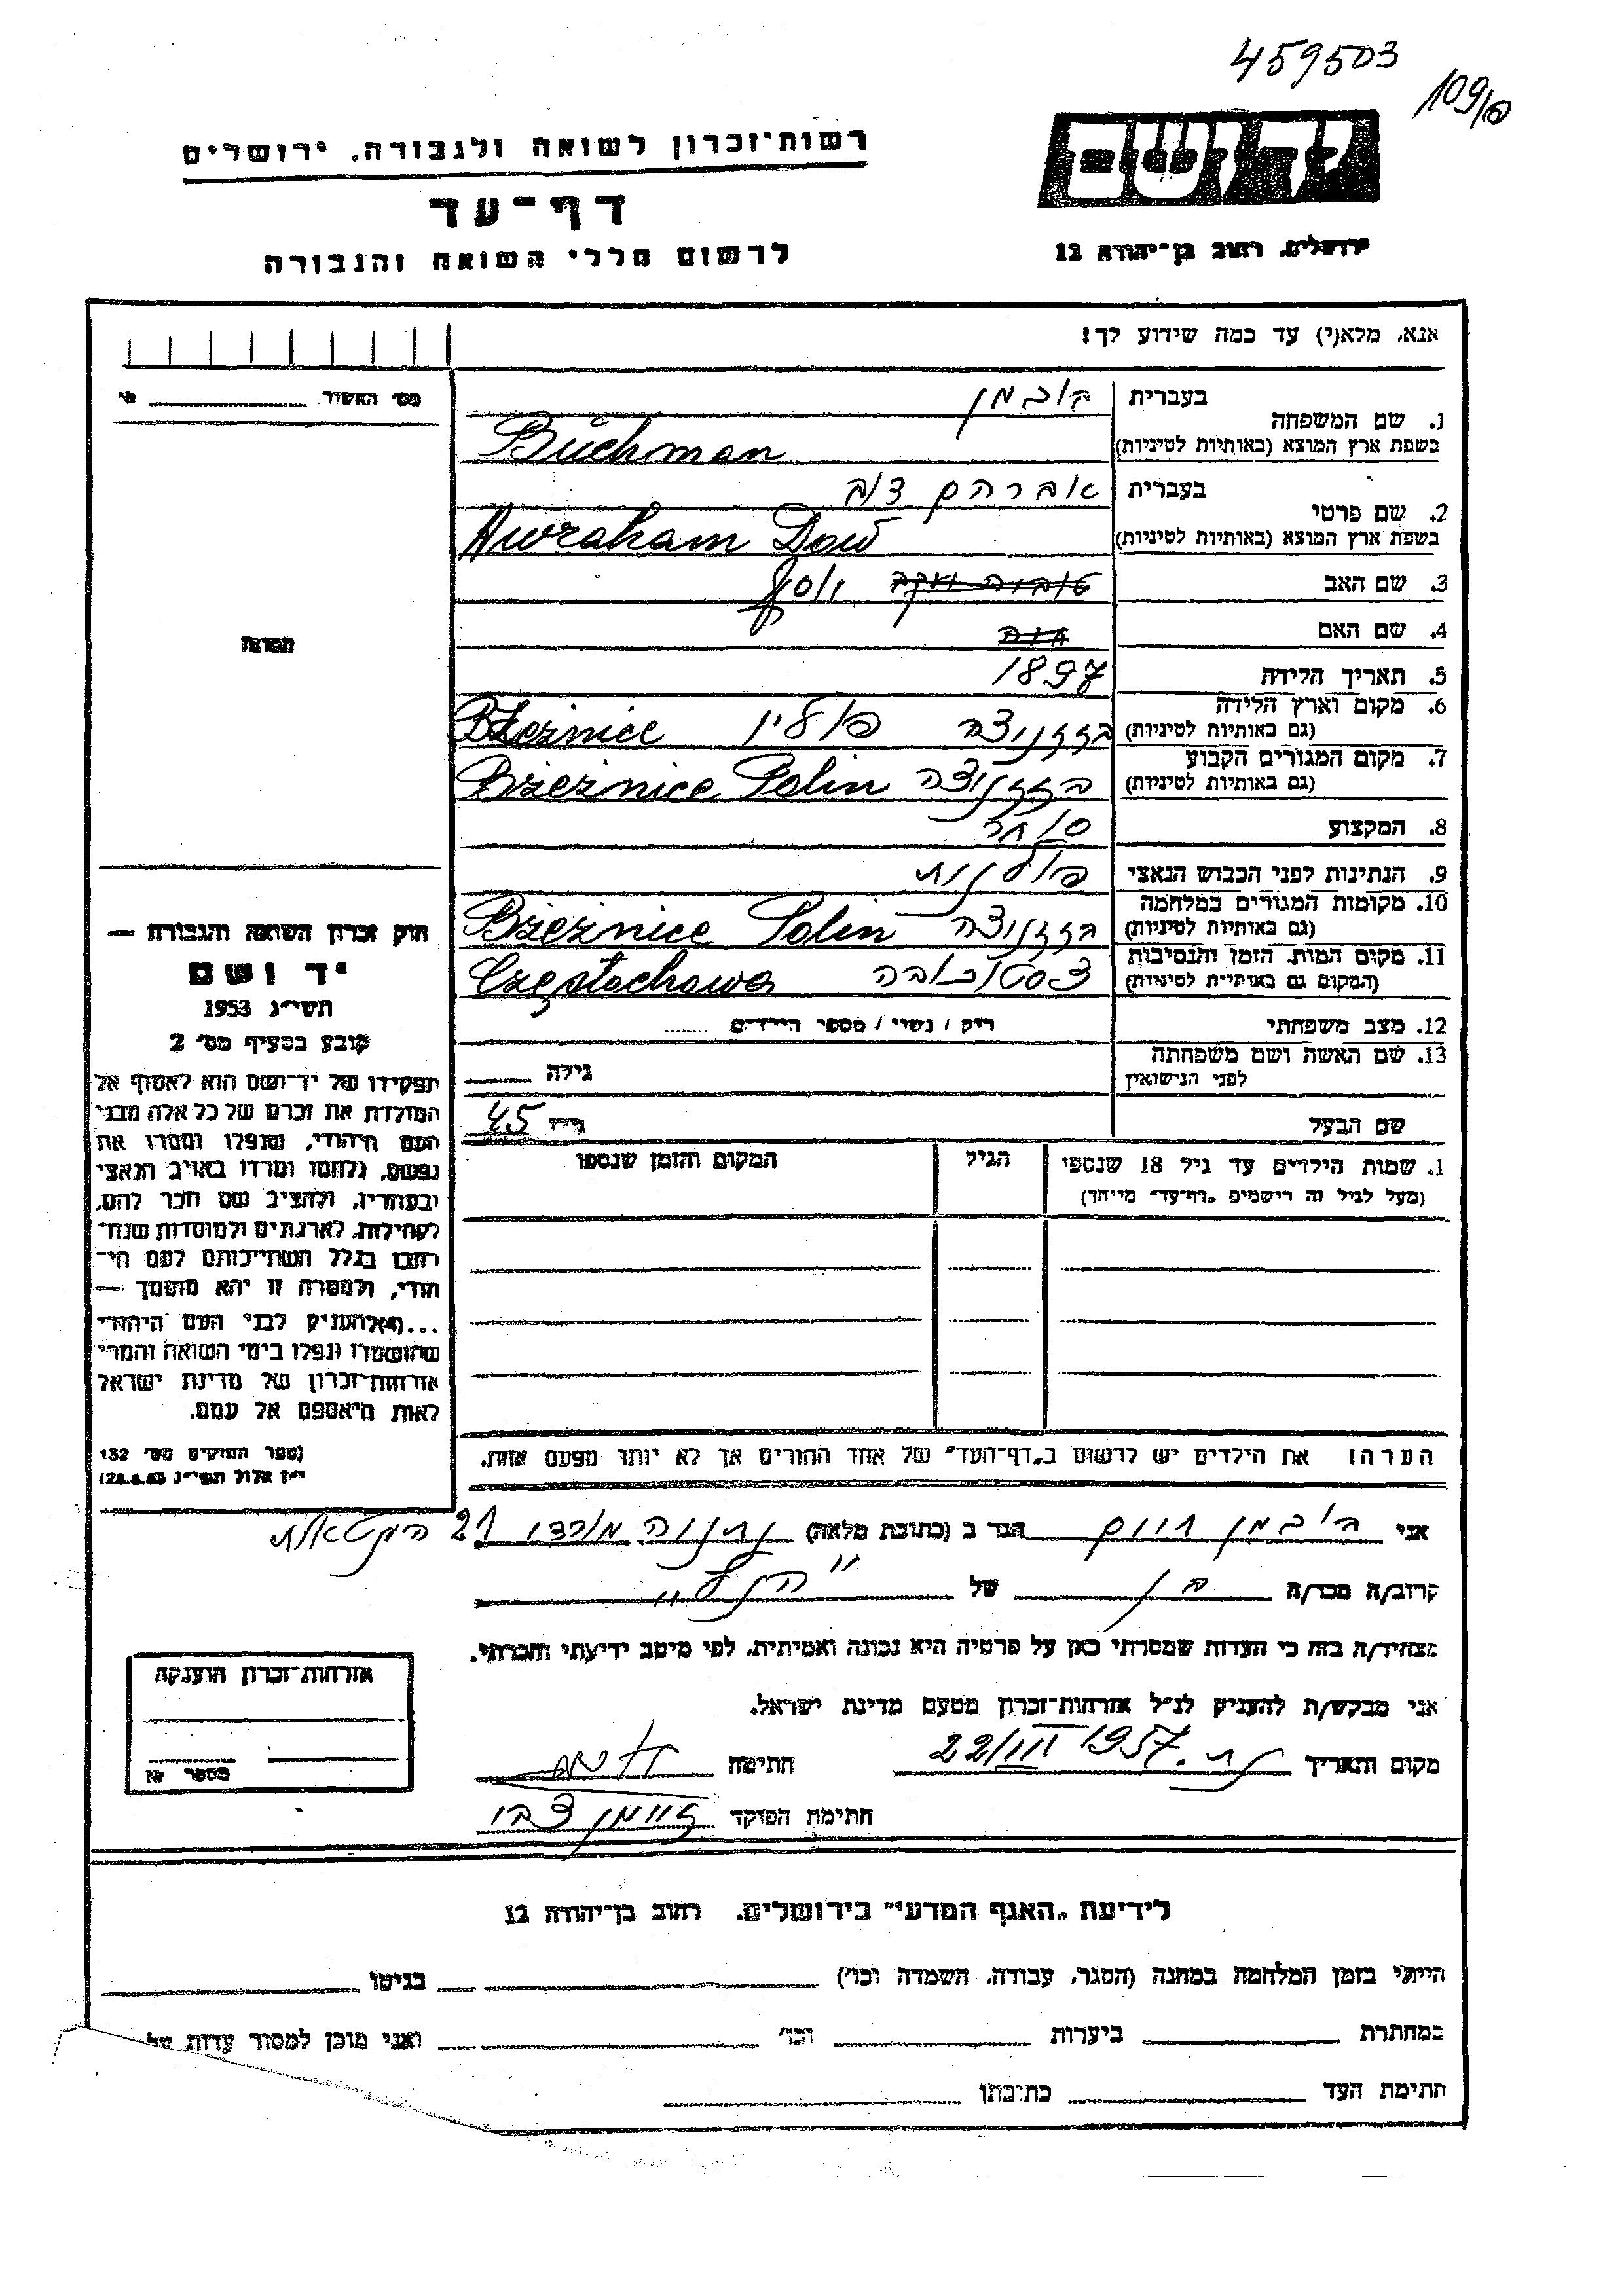 459503
109/פ
יד ושם
ירושלים, רחוב בן־יהודה 12
רשות־זכרון לשואה ולגבורה, ירושלים
דף־עד
לרשום חללי השואה והגבורה
אנא, מלא(י) עד כמה שידוע לך!
בעברית בוכמן
1. שם המשפחה
בשפת ארץ המוצא (באותיות לטיניות) Buchman
בעברית אברהם דוב
2. שם פרטי
בשפת ארץ המוצא (באותיות לטיניות) Awraham Dow
3. שם האב יוסף
4. שם האם
5. תאריך הלידה 1897
6. מקום וארץ הלידה
(גם באותיות לטיניות) בז'ז'ניצה פולין Bżeźnice
7. מקום המגורים הקבוע
(גם באותיות לטיניות) בז'ז'ניצה Bżeżnice Polin
8. המקצוע סוחר
9. הנתינות לפני הכבוש הנאצי פולנית
10. מקומות המגורים במלחמה
(גם באותיות לטיניות) בז'ז'ניצה Bżeżnice Polin
11. מקום המות, הזמן והנסיבות
(המקום גם באותיות לטיניות) צ'נסטוכובה Częstochowa
12. מצב משפחתי רוק / נשוי / מספר הילדים
13. שם האשה ושם משפחתה
לפני הנישואין גילה
שם הבעל גילו 45
1. שמות הילדים עד גיל 18 שנספו
(מעל לגיל זה רושמים "דף־עד" מיוחד)
הגיל
המקום והזמן שנספו
הערה! את הילדים יש לרשום ב"דף־העד" של אחד ההורים אך לא יותר מפעם אחת.
מס' האשור
תמונה
חוק זכרון השואה והגבורה —
יד ושם
תשי"ג 1953
קובע בסעיף מס' 2
תפקידו של יד־ושם הוא לאסוף אל
המולדת את זכרם של כל אלה מבני
העם היהודי, שנפלו ומסרו את
נפשם, נלחמו ומרדו באויב הנאצי
ובעוזריו, ולהציב שם וזכר להם,
לקהילות, לארגונים ולמוסדות שנח־
רבו בגלל השתייכותם לעם הי־
הודי, ולמטרה זו יהא מוסמך —
...(4) להעניק לבני העם היהודי
שהושמדו ונפלו בימי השואה והמרי
אזרחות־זכרון של מדינת ישראל
לאות היאספם אל עמם.
(ספר החוקים מס' 132
י"ז אלול תשי"ג 28.8.53)
אני בוכמן חיים הגר ב (כתובת מלאה) נתניה 21
קרוב/ה מכר/ה בן של "הנ"ל"
מצהיר/ה בזה כי העדות שמסרתי כאן על פרטיה היא נכונה ואמיתית, לפי מיטב ידיעתי והכרתי.
אני מבקש/ת להעניק לנ"ל אזרחות־זכרון מטעם מדינת ישראל.
מקום ותאריך נת. 22/III 1957 חתימה
חתימת הפוקד צבי
אזרחות־זכרון הוענקה
מספר №
לידיעת "האגף המדעי" בירושלים, רחוב בן־יהודה 12
הייתי בזמן המלחמה במחנה (הסגר, עבודה, השמדה וכו') בגיטו
במחתרת ביערות וכו' ואני מוכן למסור עדות על
חתימת העד כתובתו